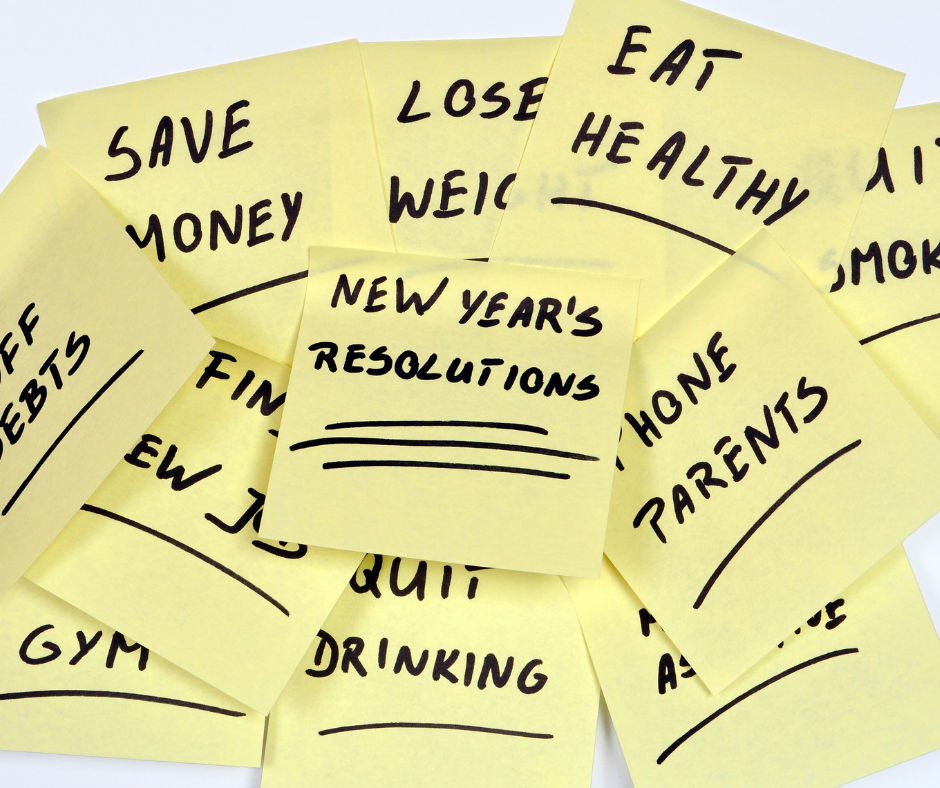 SAVE
MONEY
LOSE
WEIG
EAT
HEALTHY
SMOK
FF
DEBTS
FIN
EW JOB
NEW YEAR'S
RESOLUTIONS
PHONE
PARENTS
GYM
QUIT
DRINKING